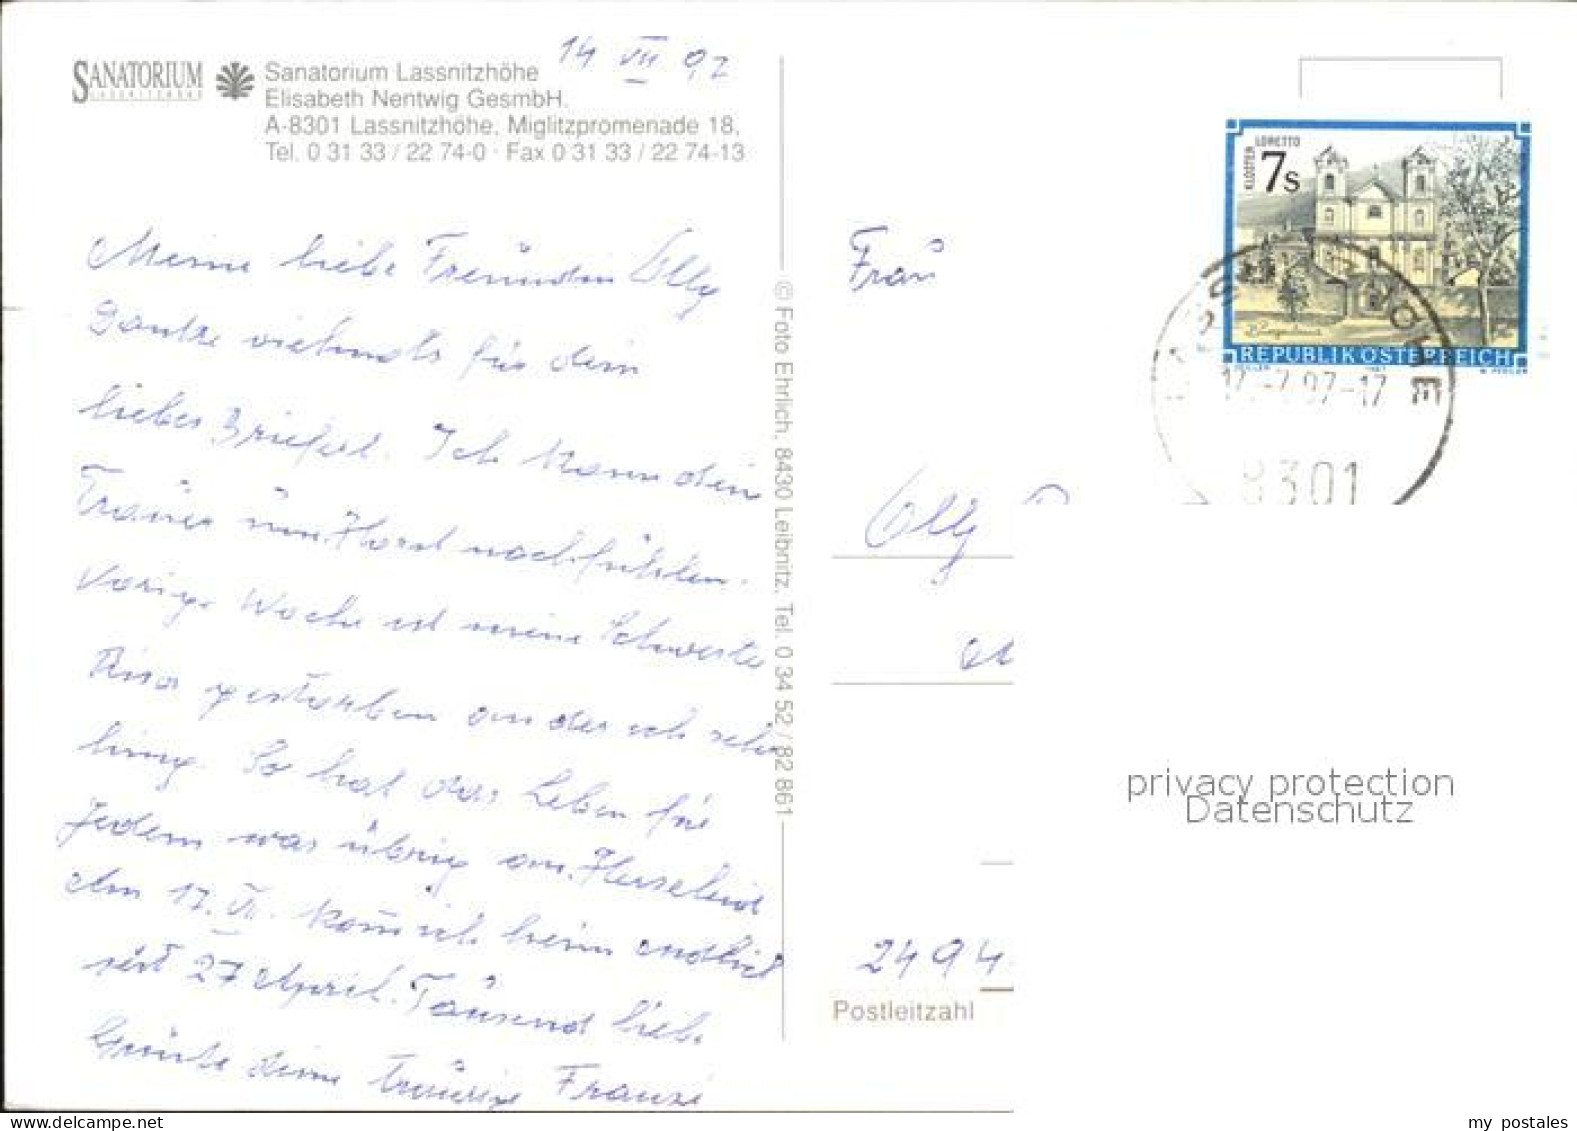 SANATORIUM
LASSNITZHÖHE
Sanatorium Lassnitzhöhe
14 VII 92
Elisabeth Nentwig GesmbH.
A-8301 Lassnitzhöhe, Miglitzpromenade 18,
Tel. 0 31 33 / 22 74-0 · Fax 0 31 33 / 22 74-13
Meine liebe Freundin Olly
Danke vielmals für dein
liebes Brieferl. Ich kann dein
Trauer um Horst nachfühlen.
Vorige Woche ist meine Schwester
Risa gestorben an der ich sehr
hing. So hat das Leben für
Jedem was übrig
Am 17. VII. komm ich heim endlich
seit 27 April. Tausend liebe
Grüße deine traurige Franzi
© Foto Ehrlich, 8430 Leibnitz, Tel. 0 34 52 / 82 861
KLOSTER LORETTO
7s
Burgenland
REPUBLIK ÖSTERREICH
8301
Frau
Olly
2494
Postleitzahl
privacy protection
Datenschutz
my postales